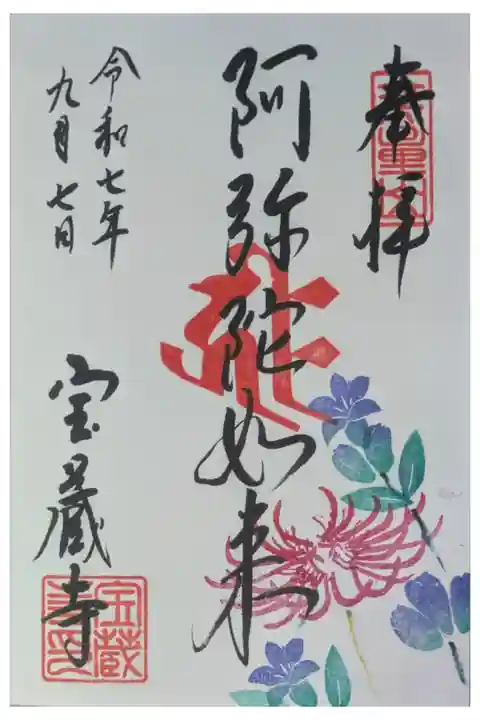 奉拝
阿弥陀如来
令和七年
九月七日
宝蔵寺